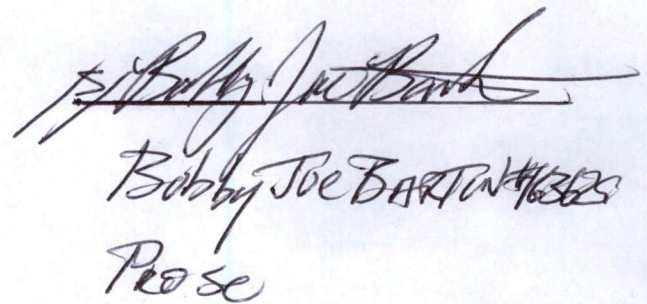 s/ Bobby Joe Barton
Bobby Joe BARTON #163625
Pro se